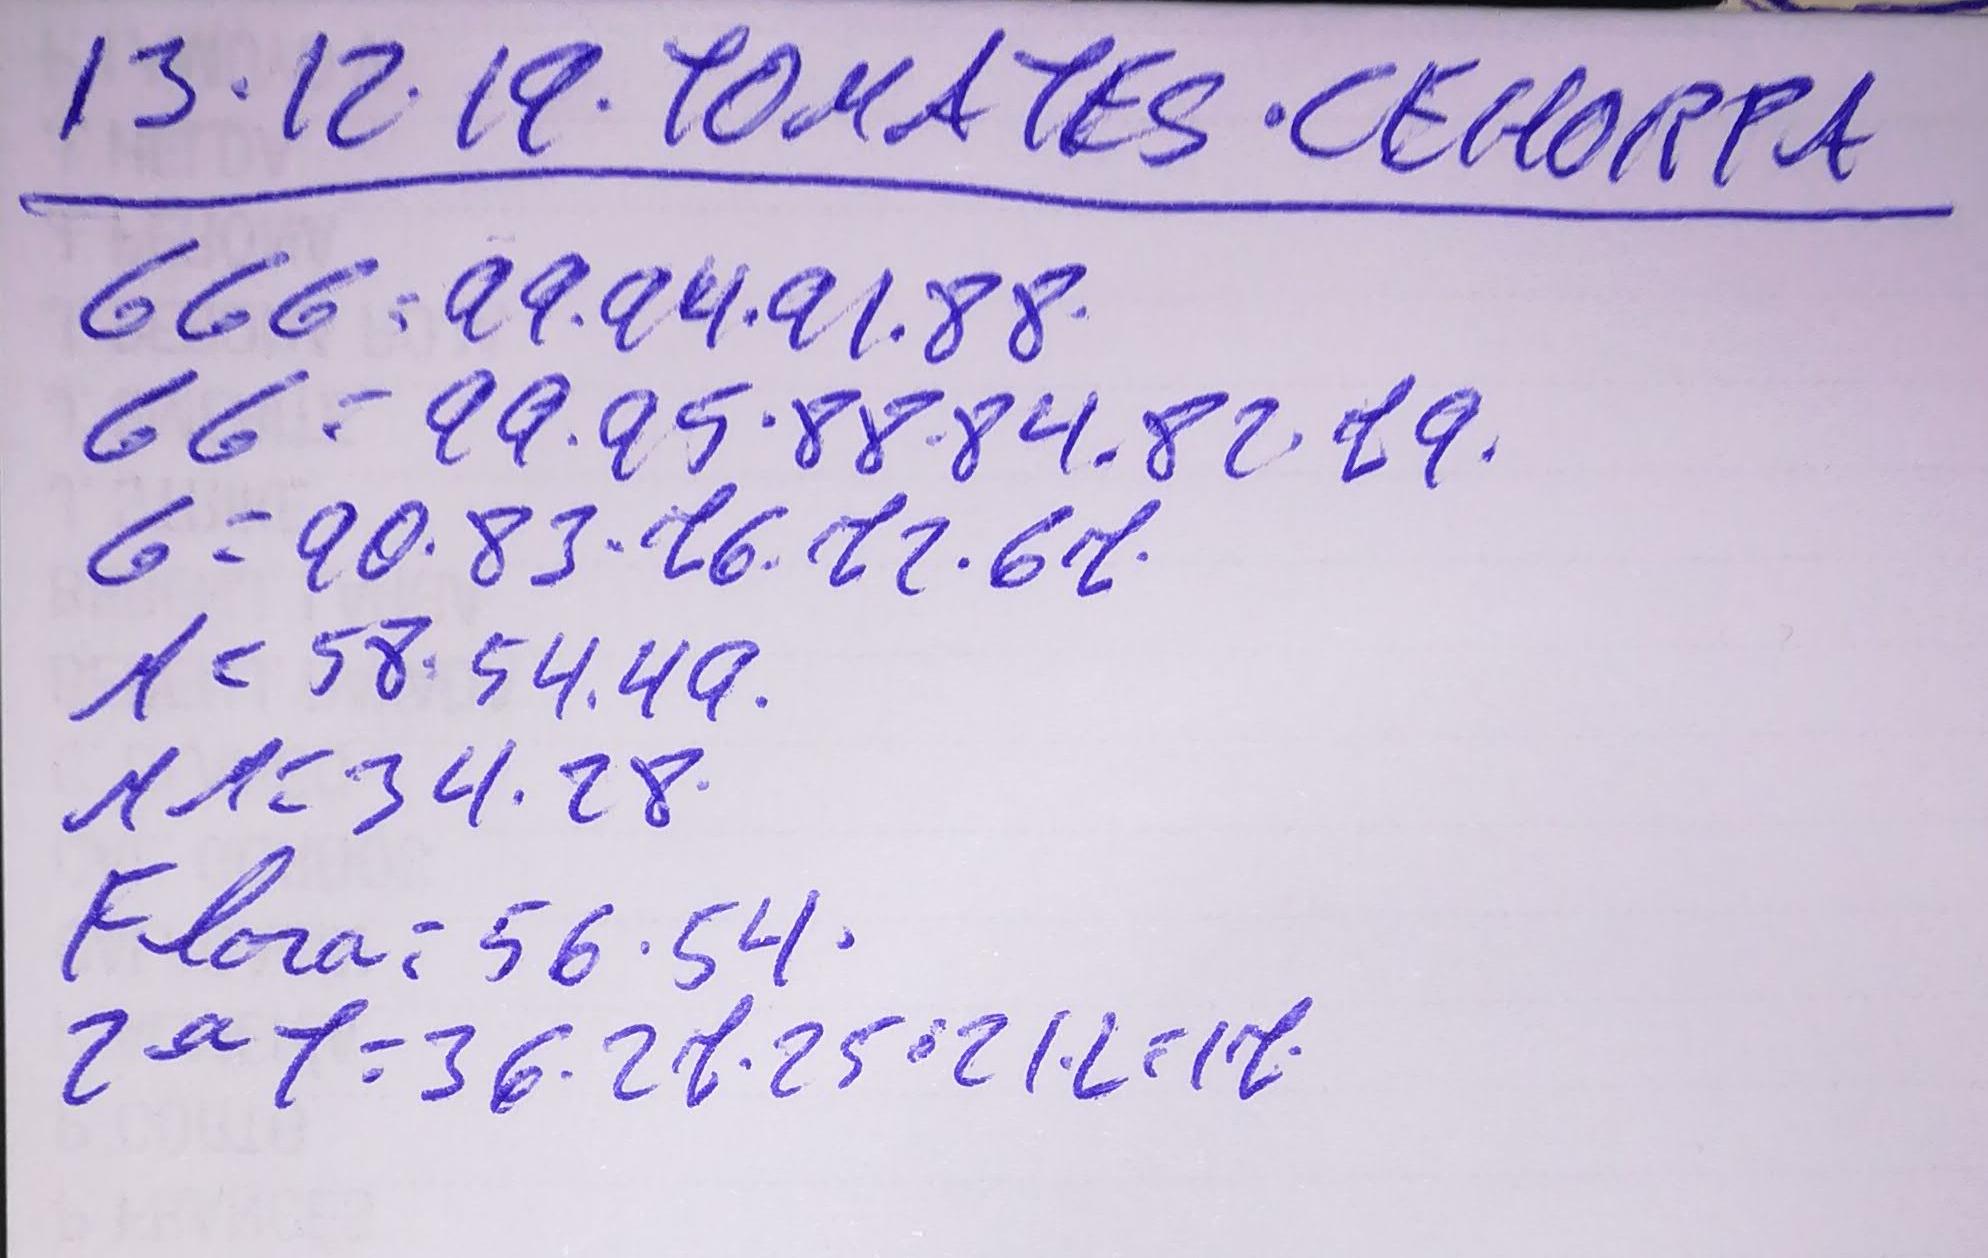 13.12.19. TOMATES.CEHORPA
GGG=99.94.91.88.
GG=99.95.88.84.82.79.
G=90.83.76.72.67.
M=58.54.49.
MM=34.28.
Flora=56.54.
2ª T=36.27.25:21.L=17.